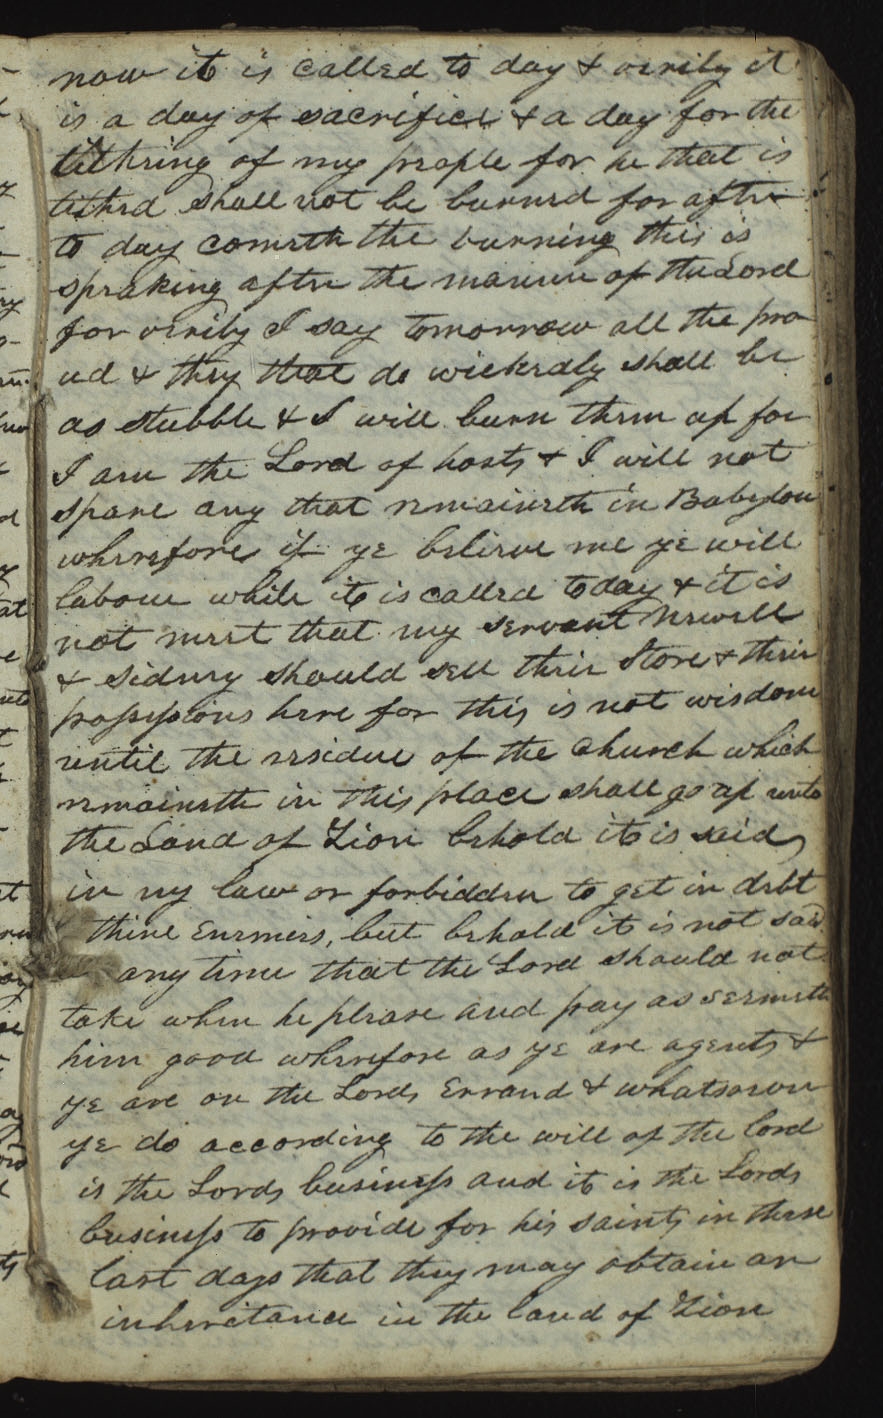 now it is called to day & verily it
is a day of sacrifice & a day for the
tithing of my people for he that is
tithed shall not be burned for after
to day cometh the burning this is
speaking after the manner of the Lord
for verily I say tomorrow all the pro
ud & they that do wickedly shall be
as stubble & I will burn them up for
I am the Lord of hosts & I will not
spare any that remaineth in Babylon
wherefore if ye believe me ye will
labour while it is called today & it is
not meet that my servent Newell
& Sidney should sell their Store & their
possessions here for this is not wisdom
until the residue of the Church which
remaineth in this place shall go up unto
the Land of Zion behold it is said
in my law or forbidden to get in debt
thine Enemies, but behold it is not said
any time that the Lord should not
take when he please and pay as seemeth
him good wherefore as ye are agents &
ye are on the Lords Errand & whatsoever
ye do according to the will of the lord
is the Lords business and it is the Lords
business to provide for his saints in these
last days that they may obtain an
inheritance in the land of Zion